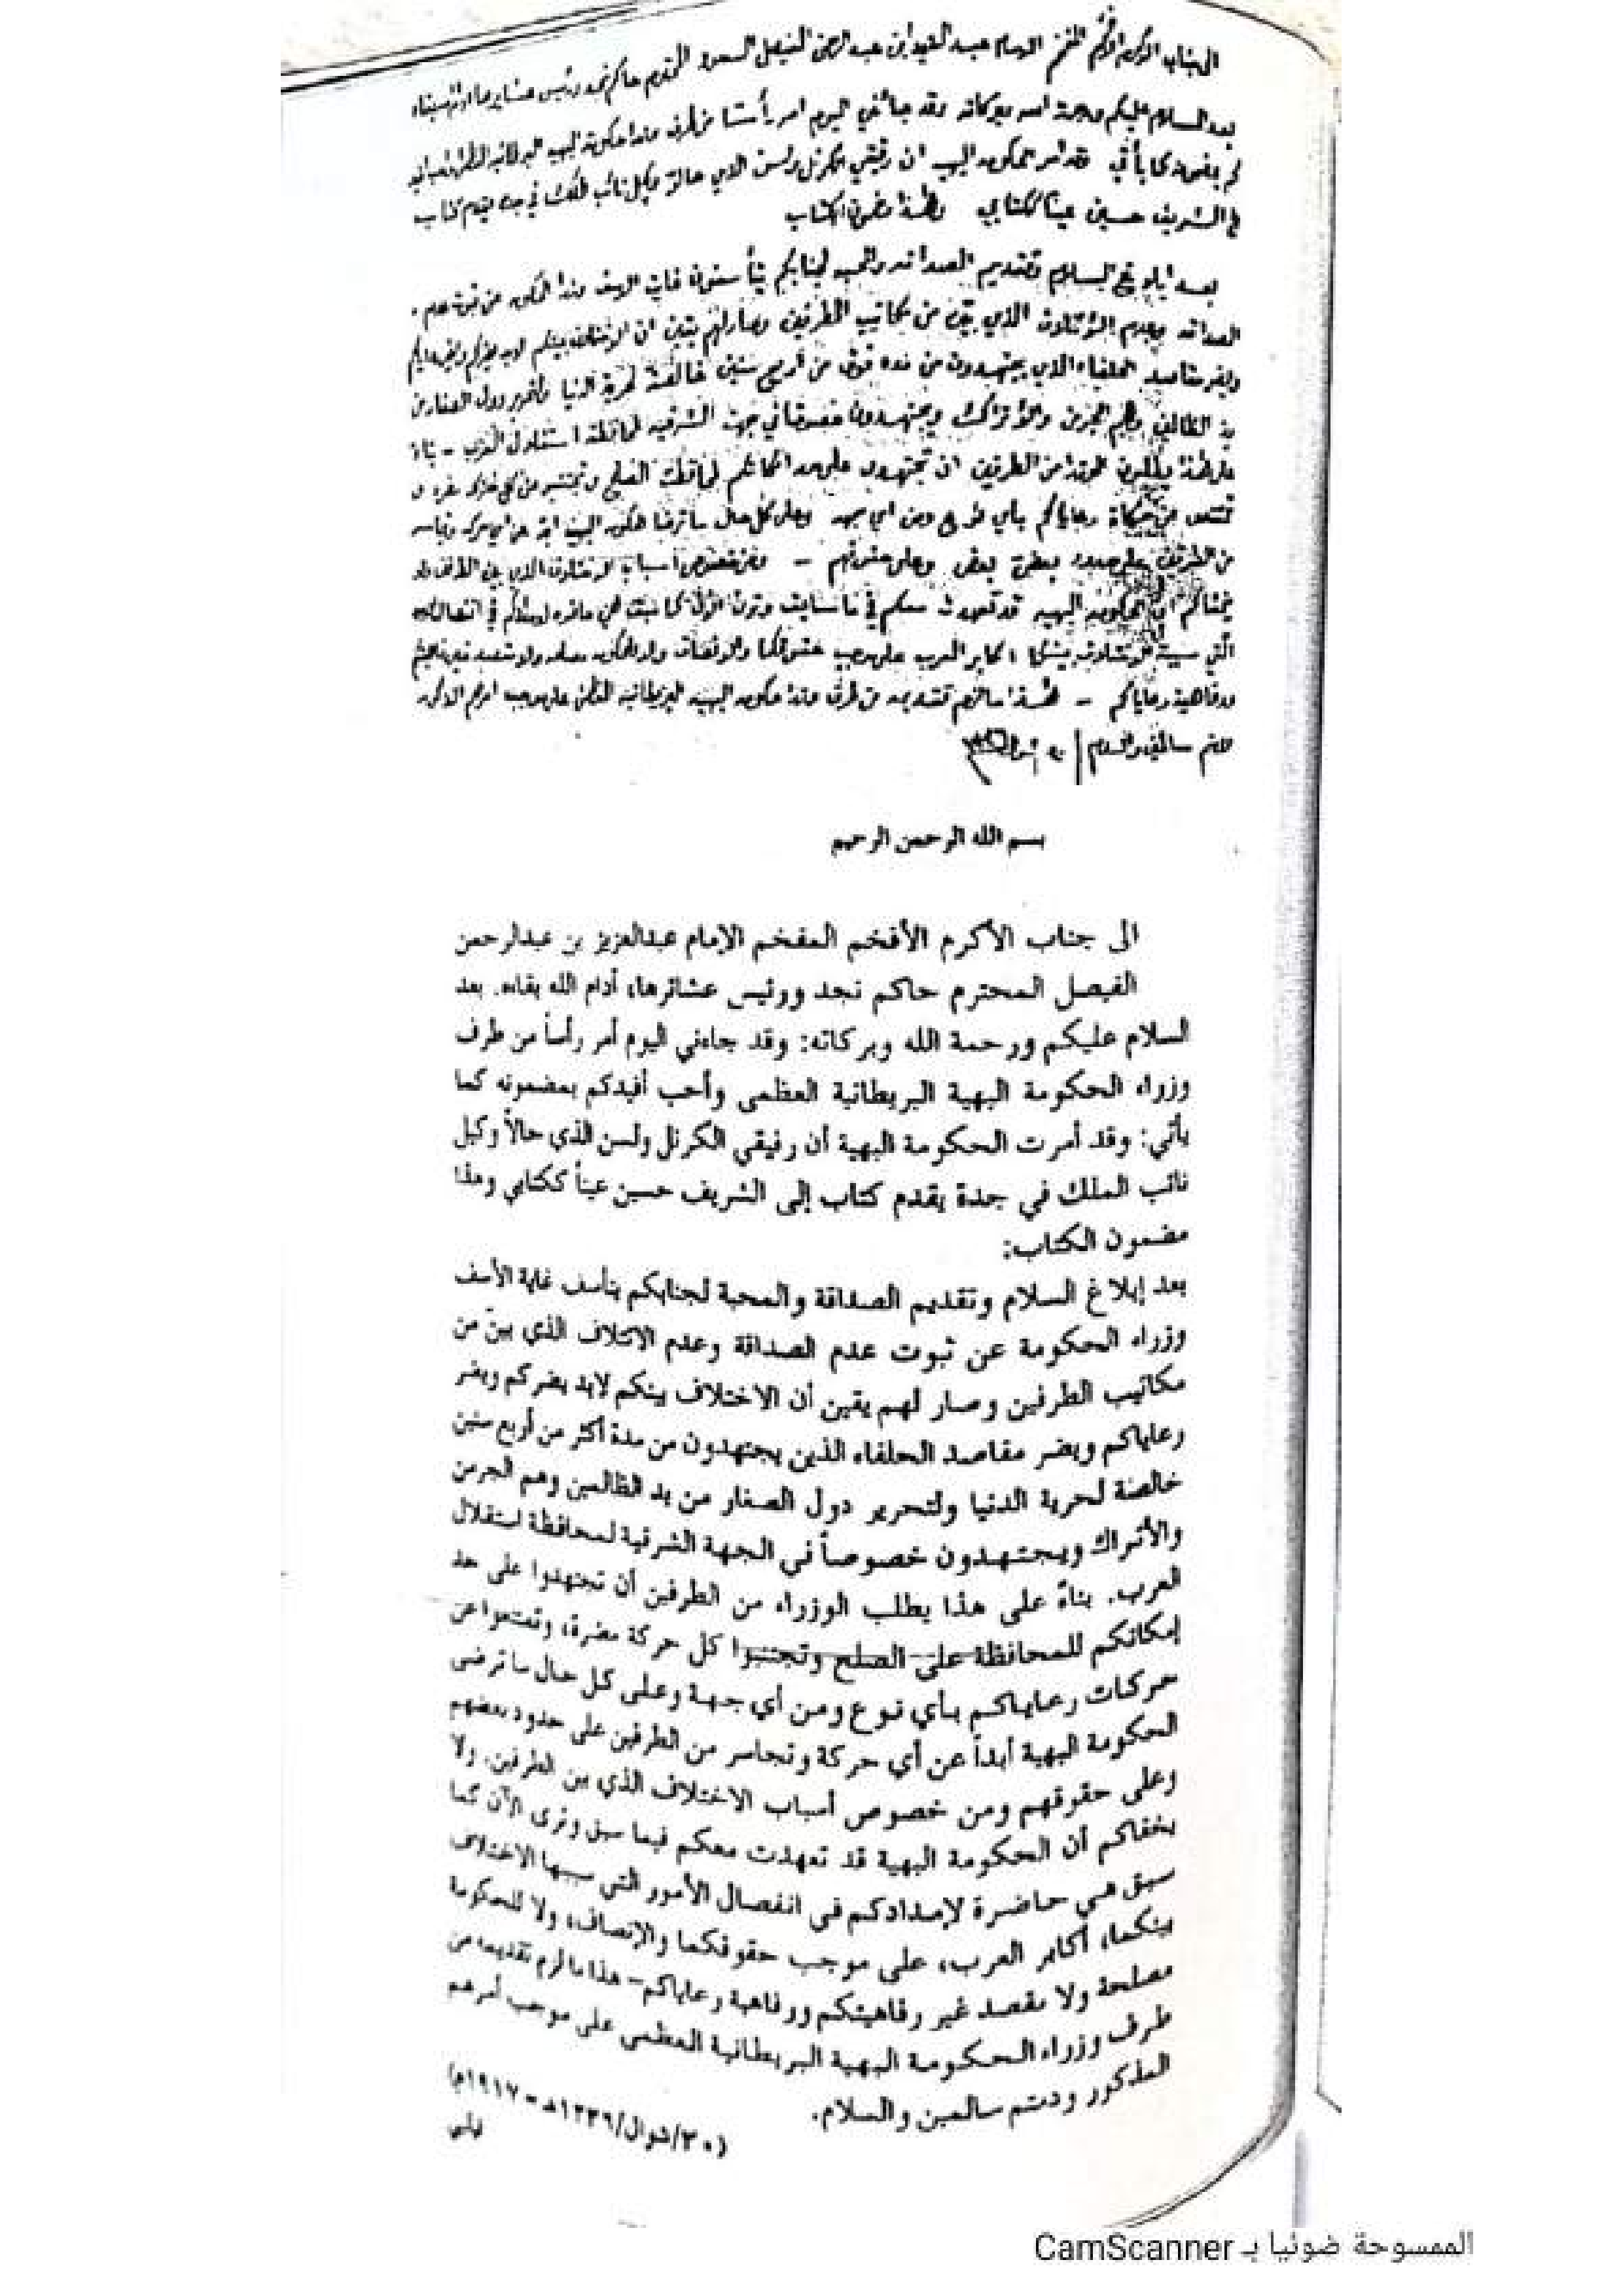 الى جناب الأكرم الأفخم المفخم الامام عبد العزيز ابن عبد الرحمن الفيصل السعود المحترم حاكم نجد ورئيس عشايرها
بعد السلام عليكم ورحمة الله وبركاته وقد جائني اليوم امر رأسا من طرف وزراء حكومة البهيه البريطانيه العظمى
كما يأتي وقد امر الحكومه البهيه ان رفيقي الكرنل ولسن الذي حالا وكيل نائب الملك في جده يقدم كتاب
الشريف حسين عينا ككتابي وهذا مضمون الكتاب
بعد ابلاغ السلام وتقديم الصداقه والمحبه لجنابكم يتأسفون غاية الاسف وزراء الحكومه عن ثبوت عدم
الصداقه وعدم الائتلاف الذي بين من مكاتيب الطرفين وصار لهم يقين ان الاختلاف بينكم لابد يضركم ويضر رعاياكم
ويضر مقاصد الحلفاء الذي يجتهدون من مده فوق من اربع سنين خالصة لحرية الدنيا ولتحرير دول الصغار من
يد الظالمين وهم الجرمن والاتراك ويجتهدون خصوصا في جهة الشرقيه لمحافظة استقلال العرب - بناء
على هذا يطلبون الوزراء من الطرفين ان تجتهدوا على حد امكانكم لمحافظة الصلح وتجتنبوا من كل حركة مضره و
رعاياكم بأي نوع ومن اي جهه وعلى كل حال ما ترضا حكومه البهيه ابدا عن اي حركه وتجاسر
من الطرفين على حدود بعضهم بعض وعلى حقوقهم - ومن خصوص اسباب الاختلاف الذي بين الطرفين ولا
يخفاكم ان الحكومه البهيه قد تعهدت معكم في ما سابق وترى الآن كما سبق هي حاضره لامدادكم في انفصال الامور
التي سببه الاختلاف بينكما اكابر العرب على موجب حقوقكما والانصاف ولا للحكومه مصلحه ولا مقصد غير رفاهيتكم
ورفاهية رعاياكم - هذا ما لزم تقديمه من طرف وزراء حكومه البهيه البريطانيه العظمى على موجب امرهم المذكور
ودمتم سالمين والسلام
بسم الله الرحمن الرحيم
الى جناب الأكرم الأفخم المفخم الإمام عبدالعزيز بن عبدالرحمن
الفيصل المحترم حاكم نجد ورئيس عشائرها، أدام الله بقاءه. بعد
السلام عليكم ورحمة الله وبركاته: وقد جاءني اليوم أمر رأساً من طرف
وزراء الحكومة البهية البريطانية العظمى وأحب أفيدكم بمضمونه كما
يأتي: وقد أمرت الحكومة البهية أن رفيقي الكرنل ولسن الذي حالاً وكيل
نائب الملك في جدة يقدم كتاب إلى الشريف حسين عيناً ككتابي وهذا
مضمون الكتاب:
بعد إبلاغ السلام وتقديم الصداقة والمحبة لجنابكم يتأسف غاية الأسف
وزراء الحكومة عن ثبوت عدم الصداقة وعدم الائتلاف الذي بيّن من
مكاتيب الطرفين وصار لهم يقين أن الاختلاف بينكم لابد يضركم ويضر
رعاياكم ويضر مقاصد الحلفاء الذين يجتهدون من مدة أكثر من أربع سنين
خالصة لحرية الدنيا ولتحرير دول الصغار من يد الظالمين وهم الجرمن
والأتراك ويجتهدون خصوصاً في الجهة الشرقية لمحافظة استقلال
العرب. بناءً على هذا يطلب الوزراء من الطرفين أن تجتهدوا على حد
إمكانكم للمحافظة على الصلح وتجتنبوا كل حركة مضرة، وتمتنعوا عن
حركات رعاياكم بأي نوع ومن أي جهة وعلى كل حال ما ترضى
الحكومة البهية أبداً عن أي حركة وتجاسر من الطرفين على حدود بعضهم
وعلى حقوقهم ومن خصوص أسباب الاختلاف الذي بين الطرفين، ولا
يخفاكم أن الحكومة البهية قد تعهدت معكم فيما سبق وترى الآن كما
سبق هي حاضرة لإمدادكم في انفصال الأمور التي سببها الاختلاف
بينكما، أكابر العرب، على موجب حقوقكما والإنصاف، ولا للحكومة
مصلحة ولا مقصد غير رفاهيتكم ورفاهية رعاياكم- هذا ما لزم تقديمه من
طرف وزراء الحكومة البهية البريطانية العظمى على موجب أمرهم
المذكور ودمتم سالمين والسلام.
(٣٠/شوال/١٣٣٦هـ - ١٩١٧م)
فلبي
الممسوحة ضوئيا بـ CamScanner